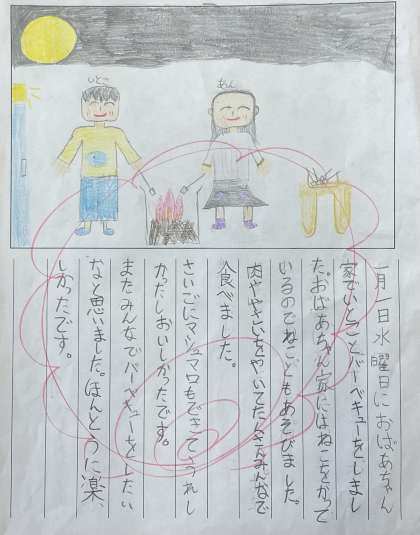 いとこ
あん
一月一日水曜日におばあちゃん
家でいとことバーベキューをしまし
た。おばあちゃん家にはねこをかって
いるのでねこどもあそびました。
肉ややさいをやいてたくさんみんなで
食べました。
さいごにマシュマロもできてうれし
かったしおいしかったです。
またみんなでバーベキューをしたい
なと思いました。ほんとうに楽
しかったです。